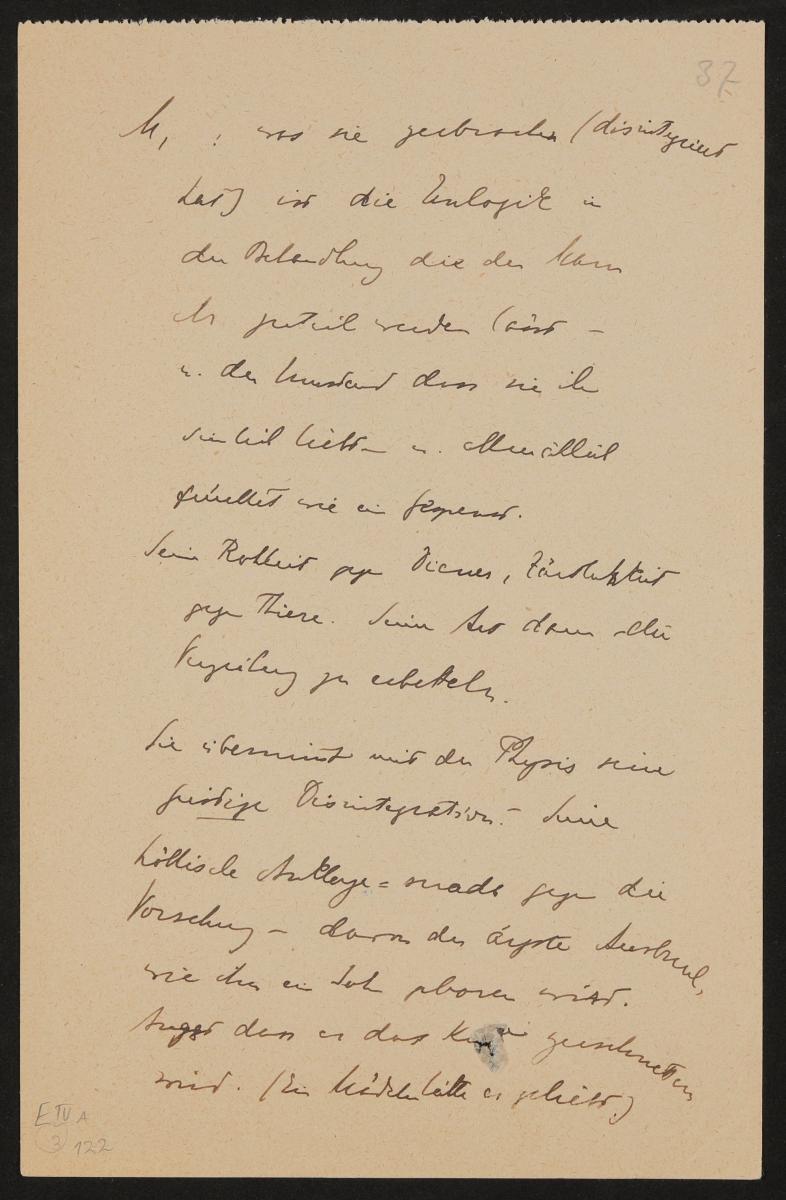 37
M, : was sie gebrochen (disintegriert
hat) ist die Unlogik in
der Behandlung die der Mann
ihr zuteil werden lässt –
u. der Umstand dass sie ihn
sinnlich liebt – u. allmählich
fürchtet wie ein Gespenst.
Seine Rohheit gegen Diener, Zärtlichkeit
gegen Thiere. Seine Art dann die
Verzeihung zu erbetteln.
Sie übernimmt mit der Physis seine
geistige Disintegration. – Seine
höllische Anklage = suada gegen die
Vorsehung – davon der ärgste Ausbruch,
wie ihm ein Sohn geboren wird.
Angst dass er das zerschmettern
wird. (Ein Mädchen hätte er geliebt)
E IV A
3 122